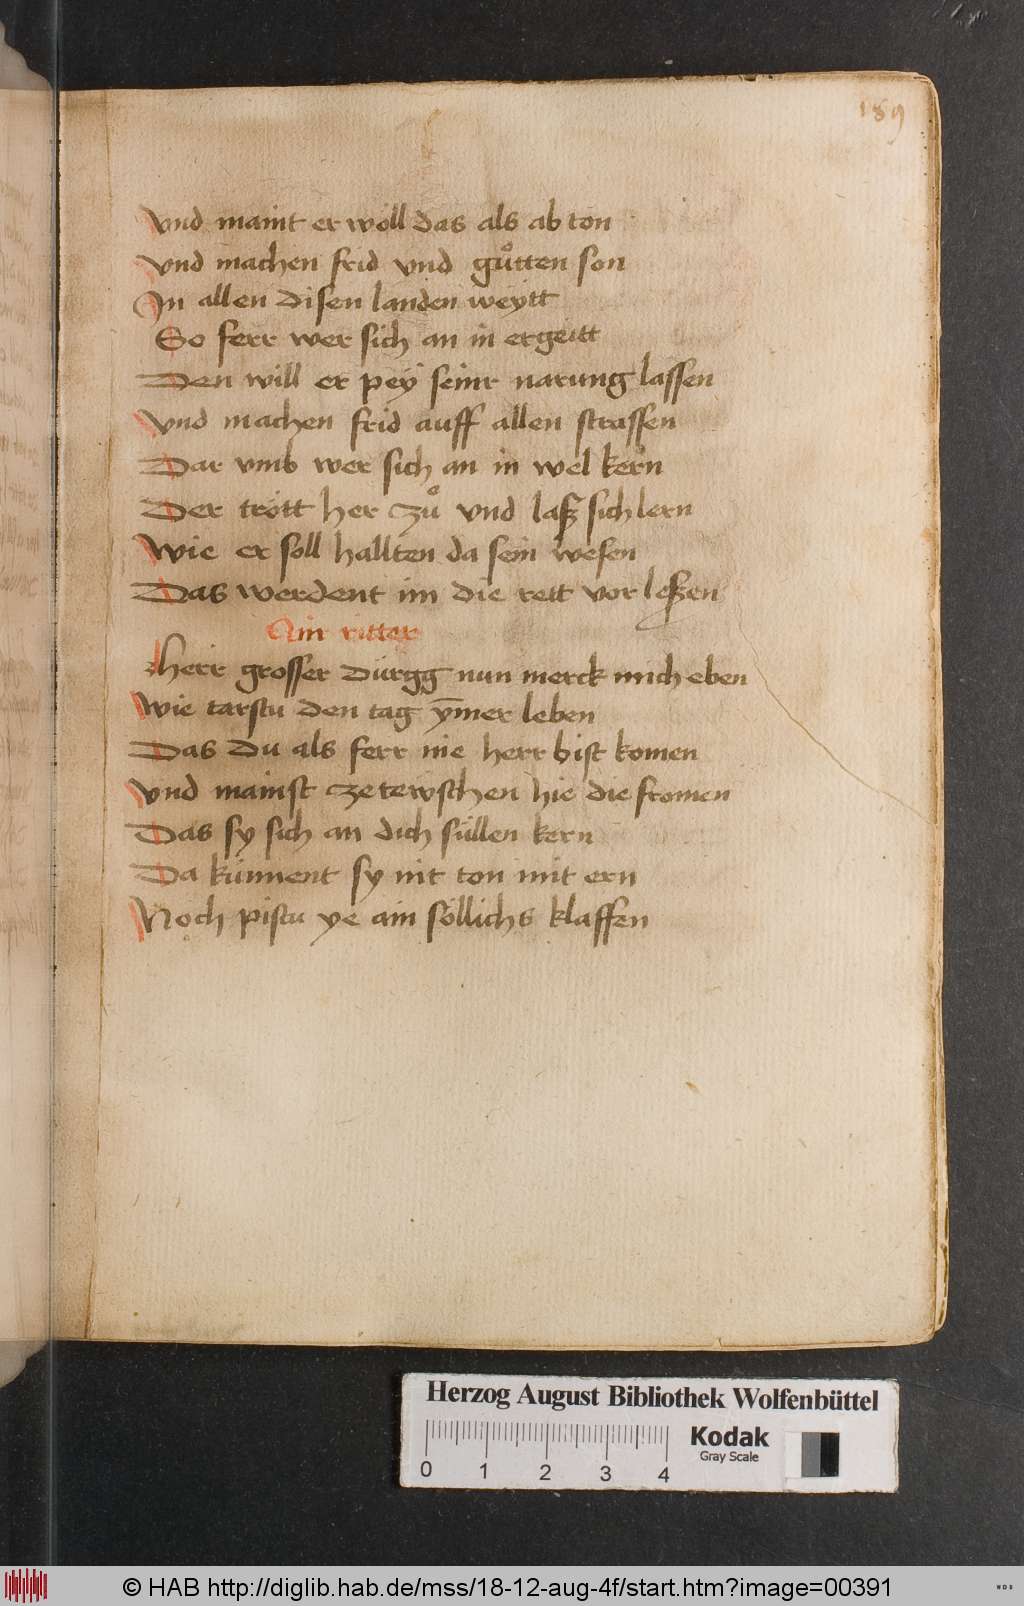 189
vnd maint er wöll das als ab ton
vnd machen frid vnd gůtten son
In allen disen landen weytt
So ferr wer sich an in ergeitt
Den will er pey seinr narung lassen
vnd machen frid auff allen strassen
Dar vmb wer sich an in wel kern
Der trött her zů vnd laß sich lern
Wie er soll hallten da sein wesen
Das werdent im die rett vor leßen
Ain ritter
Herr grosser dürgg nun merck mich eben
Wie tarstu den tag ÿmer leben
Das du als ferr nie herr bist komen
vnd mainst cze tewschen hie die fromen
Das sy sich an dich süllen kern
Da künnent sy nit ton mit ern
Noch pistu ye ain söllichs klaffen
Herzog August Bibliothek Wolfenbüttel
Kodak
Gray Scale
0 1 2 3 4
© HAB http://diglib.hab.de/mss/18-12-aug-4f/start.htm?image=00391